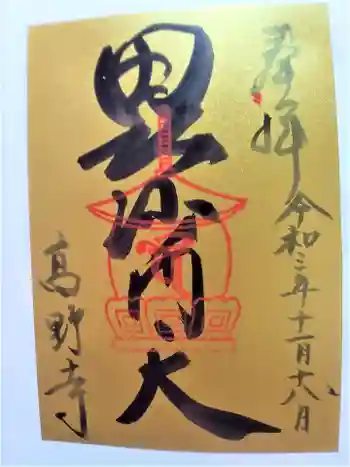 奉拝
令和三年十一月十八日
毘沙門天
高野寺